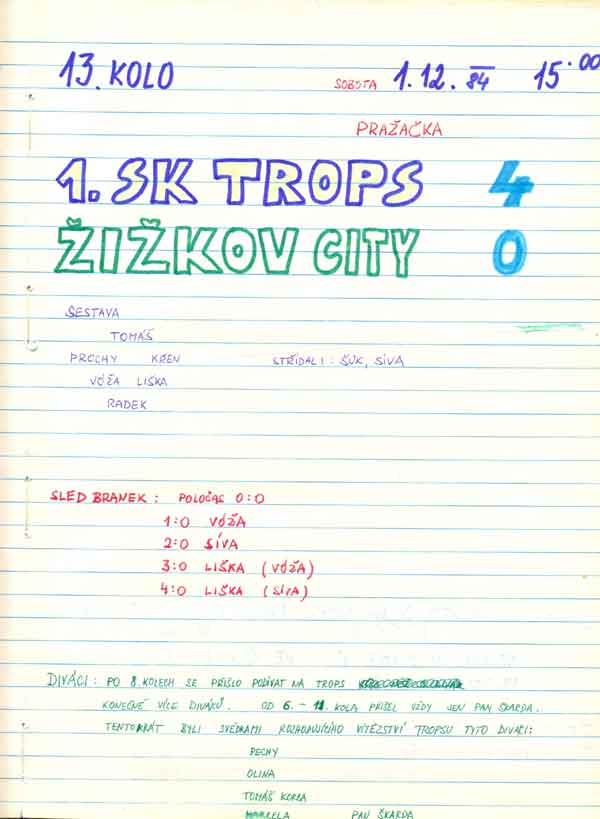 13. KOLO SOBOTA 1.12.84 15.00
PRAŽAČKA
1. SK TROPS 4
ŽIŽKOV CITY 0
SESTAVA
TOMÁŠ
PROCHY KŘEN STŘÍDALI: ŠUK, SÍVA
VÓŽA LIŠKA
RADEK
SLED BRANEK: POLOČAS 0:0
1:0 VÓŽA
2:0 SÍVA
3:0 LIŠKA (VÓŽA)
4:0 LIŠKA (SÍVA)
DIVÁCI: PO 8. KOLECH SE PŘIŠLO PODÍVAT NA TROPS
KONEČNĚ VÍCE DIVÁKŮ. OD 6.-11. KOLA PŘIŠEL VŽDY JEN PAN ŠKARDA.
TENTOKRÁT BYLI SVĚDKAMI ROZHODUJÍCÍHO VÍTĚZSTVÍ TROPSU TYTO DIVÁCI:
PECHY
OLINA
TOMÁŠ
PAN ŠKARDA